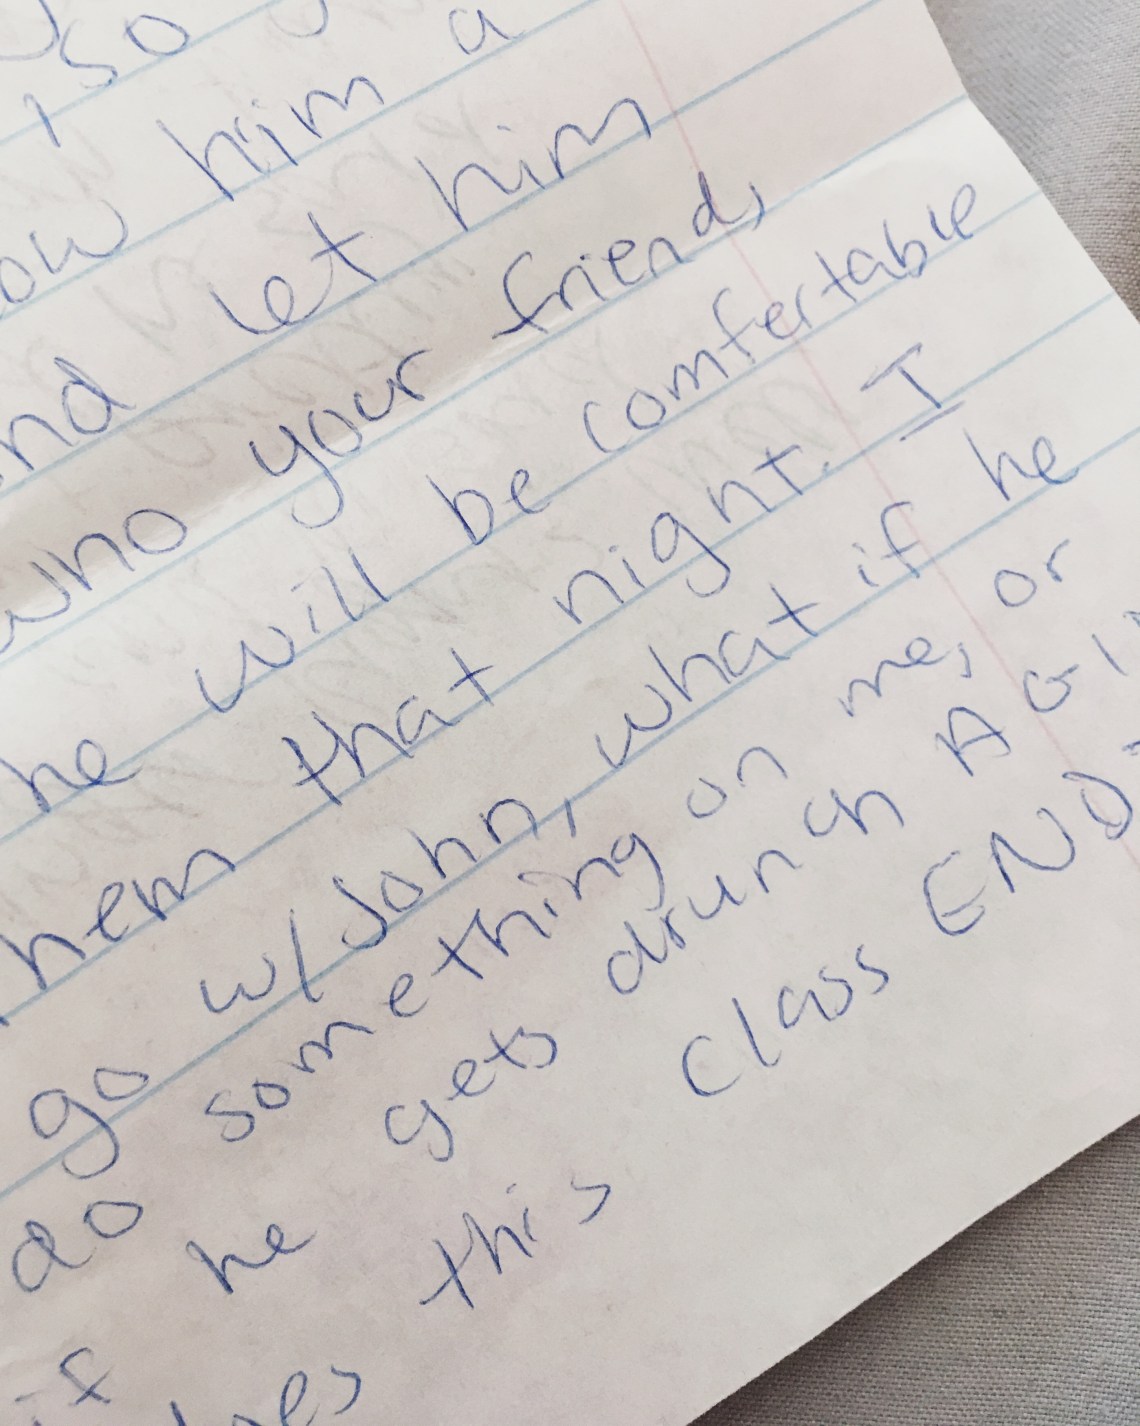 , so
ow him a
nd let him
who your friends
he will be comfertable
hem that night. I
go w/ John, what if he
do something on me, or
if he gets drunch A GI
oes this class END